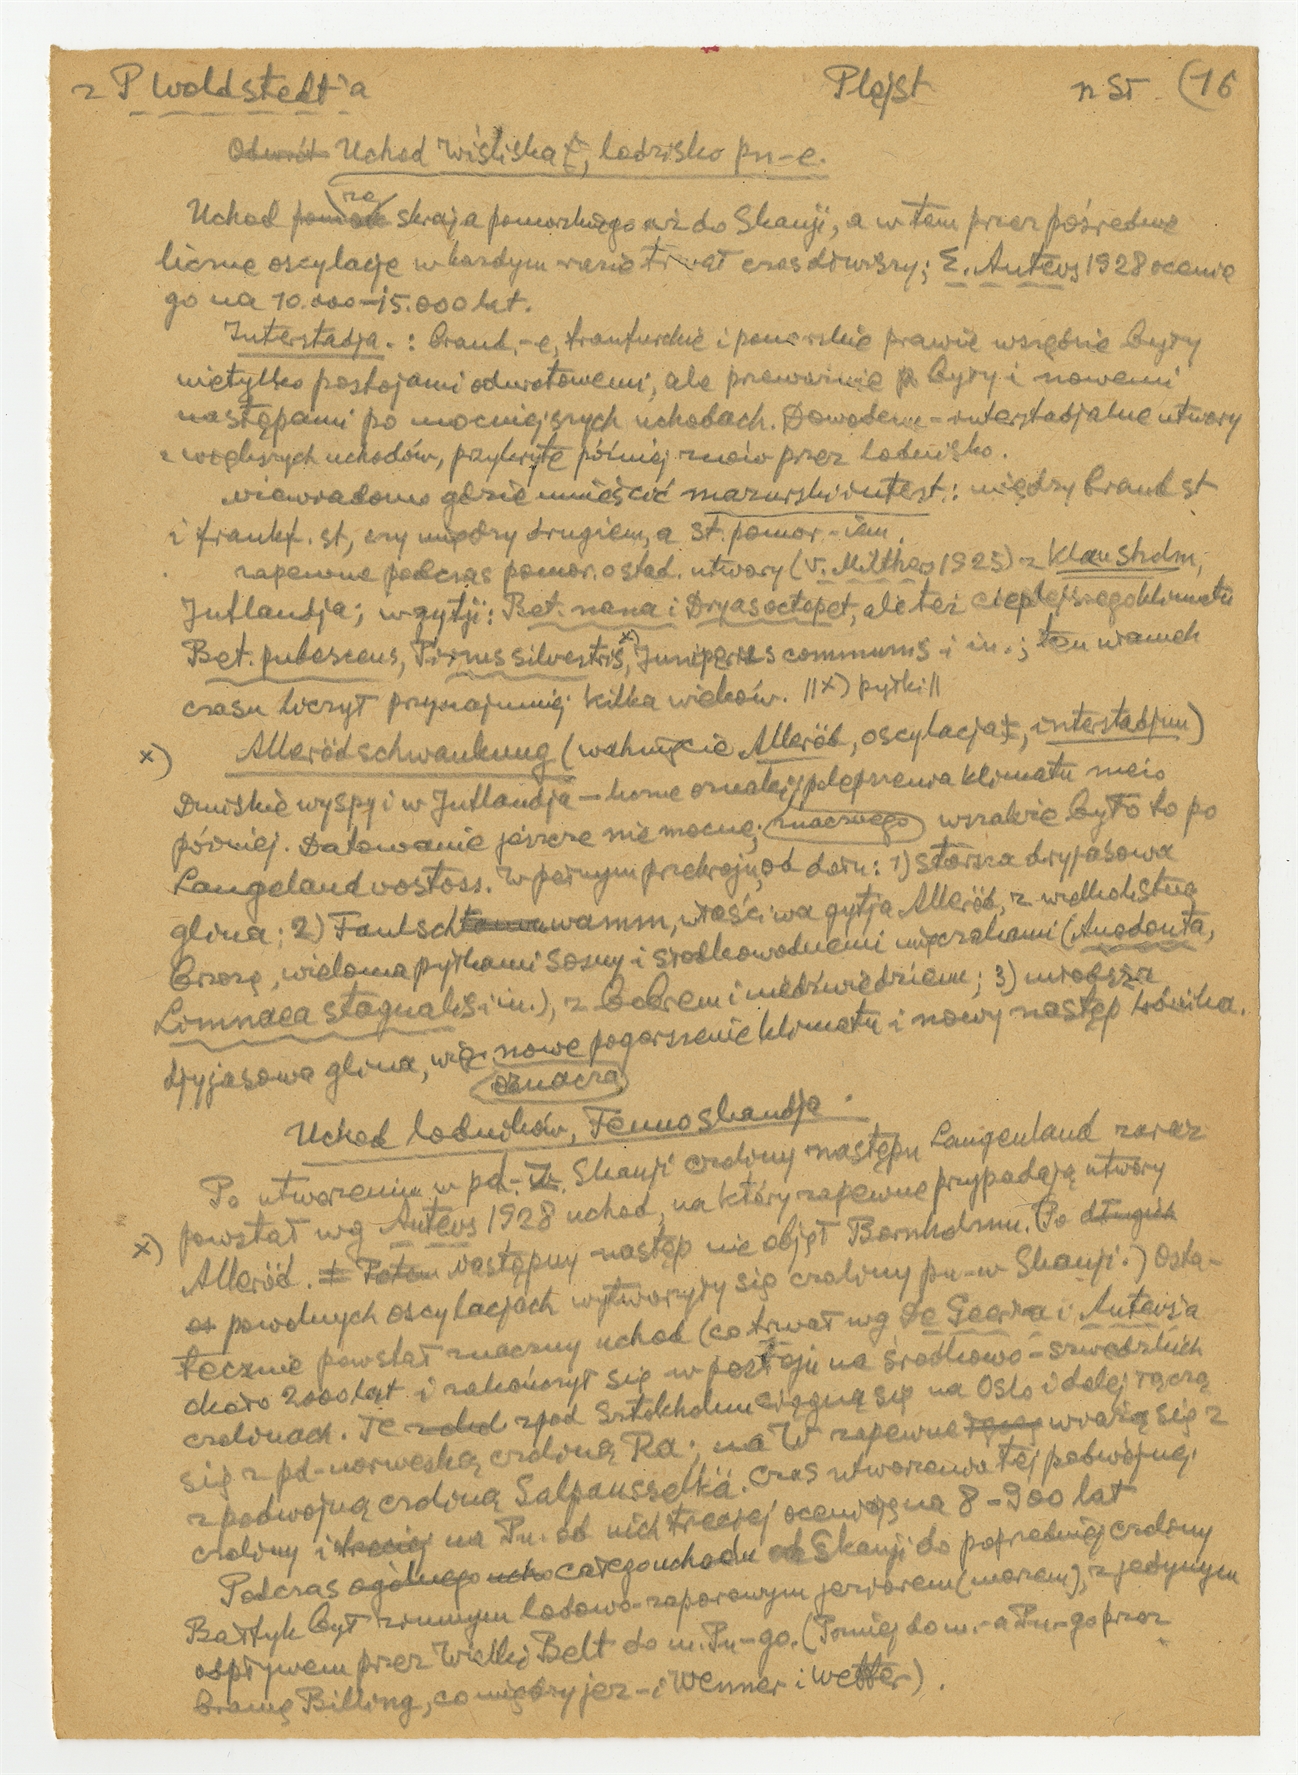 z P Woldstedt'a Plejst n Sr (16
Odwrót Uchod Wisliska Ł, lodzisko pn-e.
Uchod ze skraja pomorskiego aż do Skanji, a w tem przez pośrednie
liczne oscylacje w każdym razie trwał czas dłuższy; E. Antevs 1928 ocenia
go na 10.000–15.000 lat.
Interstadja. : brand.-e, frankfurckie i pomorskie prawie wszędzie były
nietylko postojami odwrotowemi, ale przeważnie były i nowemi
nastepami po mocniejszych uchodach. Dowodem - interstadjalne utwory
z większych uchodów, przykryte później znów przez lodnisko.
niewiadomo gdzie umieścić mazurski interst.: między brand st
i frankf. st, czy między drugiem, a st. pomor.-iem.
zapewne podczas pomor. o stad. utwory (V. Milthers 1925) z Klausholm,
Jutlandja; w gytji: Bet. nana i Dryas octopet, ale też cieplejszego klimatu
Bet. pubescens, Pinus silvestris, x) Juniperus communis i in.; ten ułamek
czasu liczył przynajmniej kilka wieków. || x) pyłki ||
x) Alleröd schwankung (wahnięcie Alleröd, oscylacja Ł, interstadjum)
Duńskie wyspy i w Jutlandja – liczne oznaki polepszenia klimatu nieio
później. Datowanie jeszcze nie mocne; znacznego wszakże było to po
Langeland vostoss. W pełnym przekroju, od dołu: 1) starsza dryjasowa
glina; 2) Faulschlamm, właściwa gytja Alleröd, z wielkolistną
brzozą, wieloma pyłkami sosny i słodkowodnemi mięczakami (Anodonta,
Limnaea stagnalis i in.), z bobrem i niedźwiedziem; 3) młodsza
dryjasowa glina, więc nowe pogorszenie klimatu i nowy następ lodnika.
oznacza
Uchod lodników, Fennoskandja.
Po utworzeniu w pd.-Z. Skanji czoliny nastepu Langenland zaraz
powstał wg Antevs 1928 uchod, na który zapewne przypadają utwory
x) Alleröd. Potem następny następ nie objął Bornholmu. (Po długich
powolnych oscylacjach wytworzyły się czoliny pn-w Skanji.) Osta-
tecznie powstał znaczny uchod (co trwał wg De Geer'a i Antevs'a
około 2000 lat i zakończył się w postoju na środkowo-szwedzkich
czolinach. Te zpod Sztokholmu ciągną się na Oslo i dalej łączą
się z pd-norweską czoliną Ra; na W zapewne wiążą się z
z podwójną czoliną Salpausselkä. Czas utworzenia tej podwójnej
czoliny i trzeciej na Pn. od nich trzeciej oceniają na 8–900 lat
Podczas ogólnego całego uchodu od Skanji do poprzedniej czoliny
Bałtyk był zimnym lodowo-zaporowym jeziorem (morzem), z jedynym
odpływem przez Wielki Belt do m. Pn-go. (Później do m.-a Pn-go przez
bramę Billing, co między jez-i Wenner i Wetter).